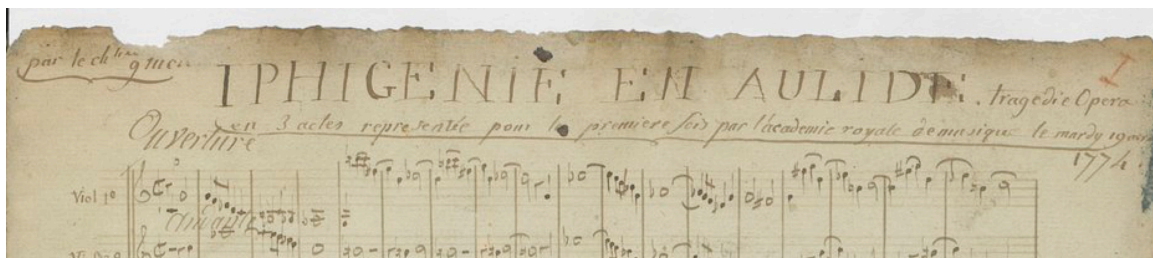 par le ch
IPHIGENIE EN AULIDE. tragedie Opera
en 3 actes representée pour la premiere fois par l'academie royale de musique le mardy 19
Ouverture
1774
Viol 1º